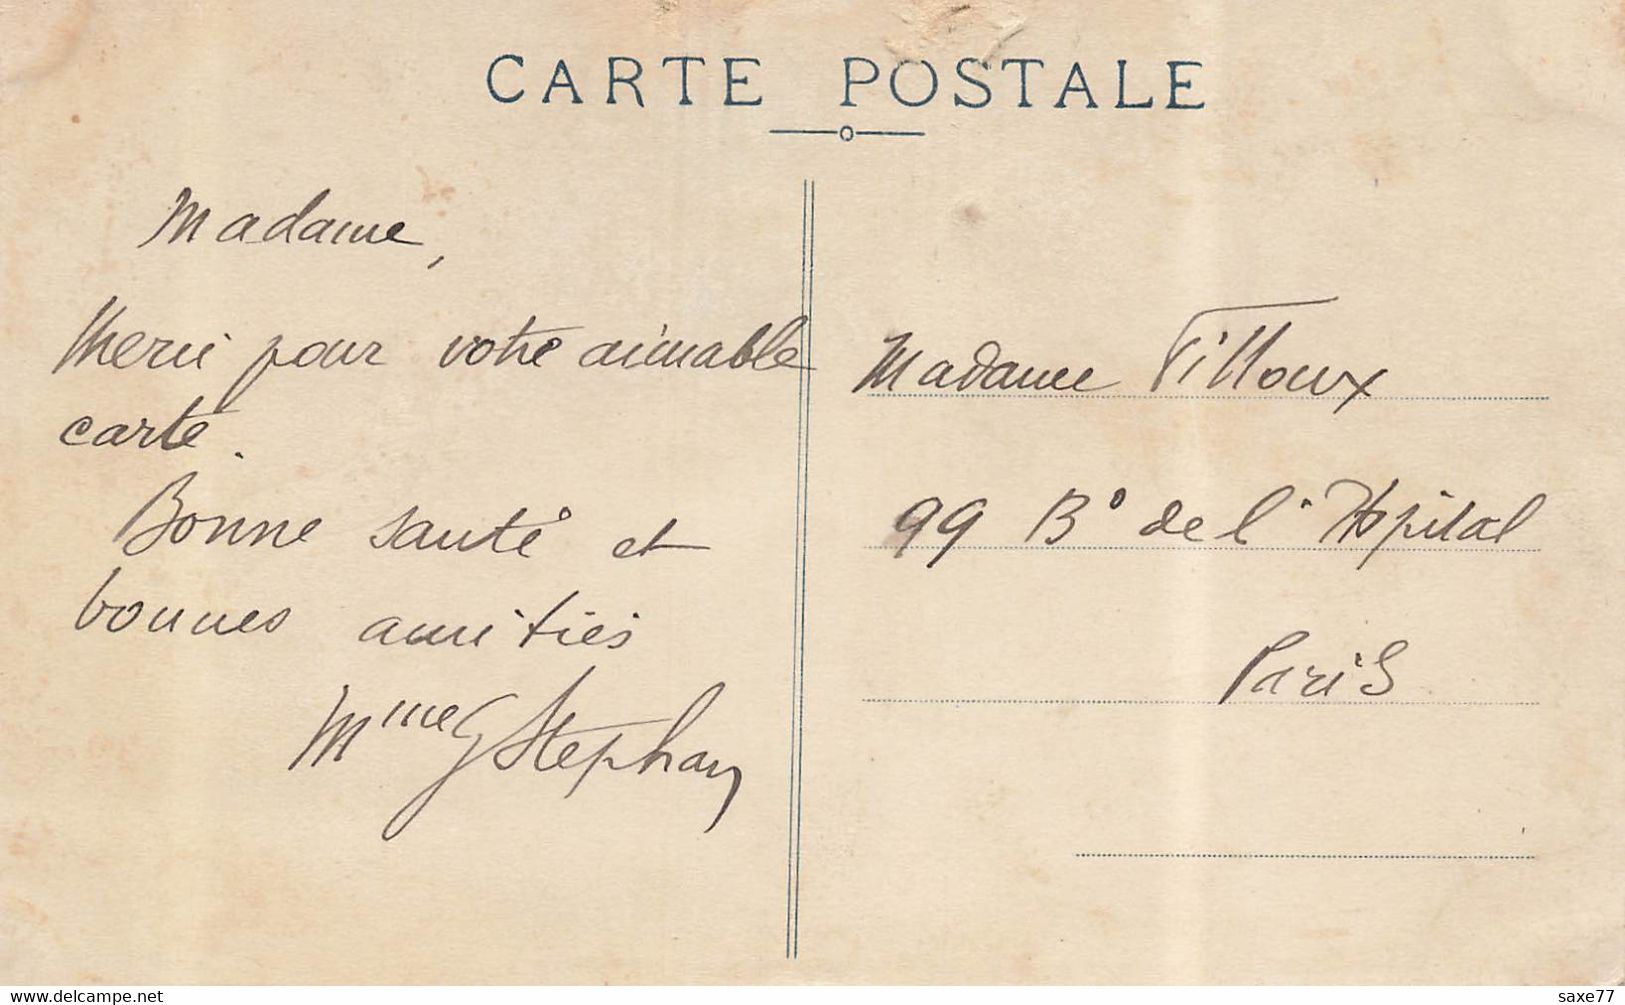 CARTE POSTALE
Madame,
Merci pour votre aimable
carte.
Bonne santé et
bonnes amitiés
Mme G Stephan
Madame Tilloux
99 Bd de l'Hôpital
Paris
www.delcampe.net
saxe77